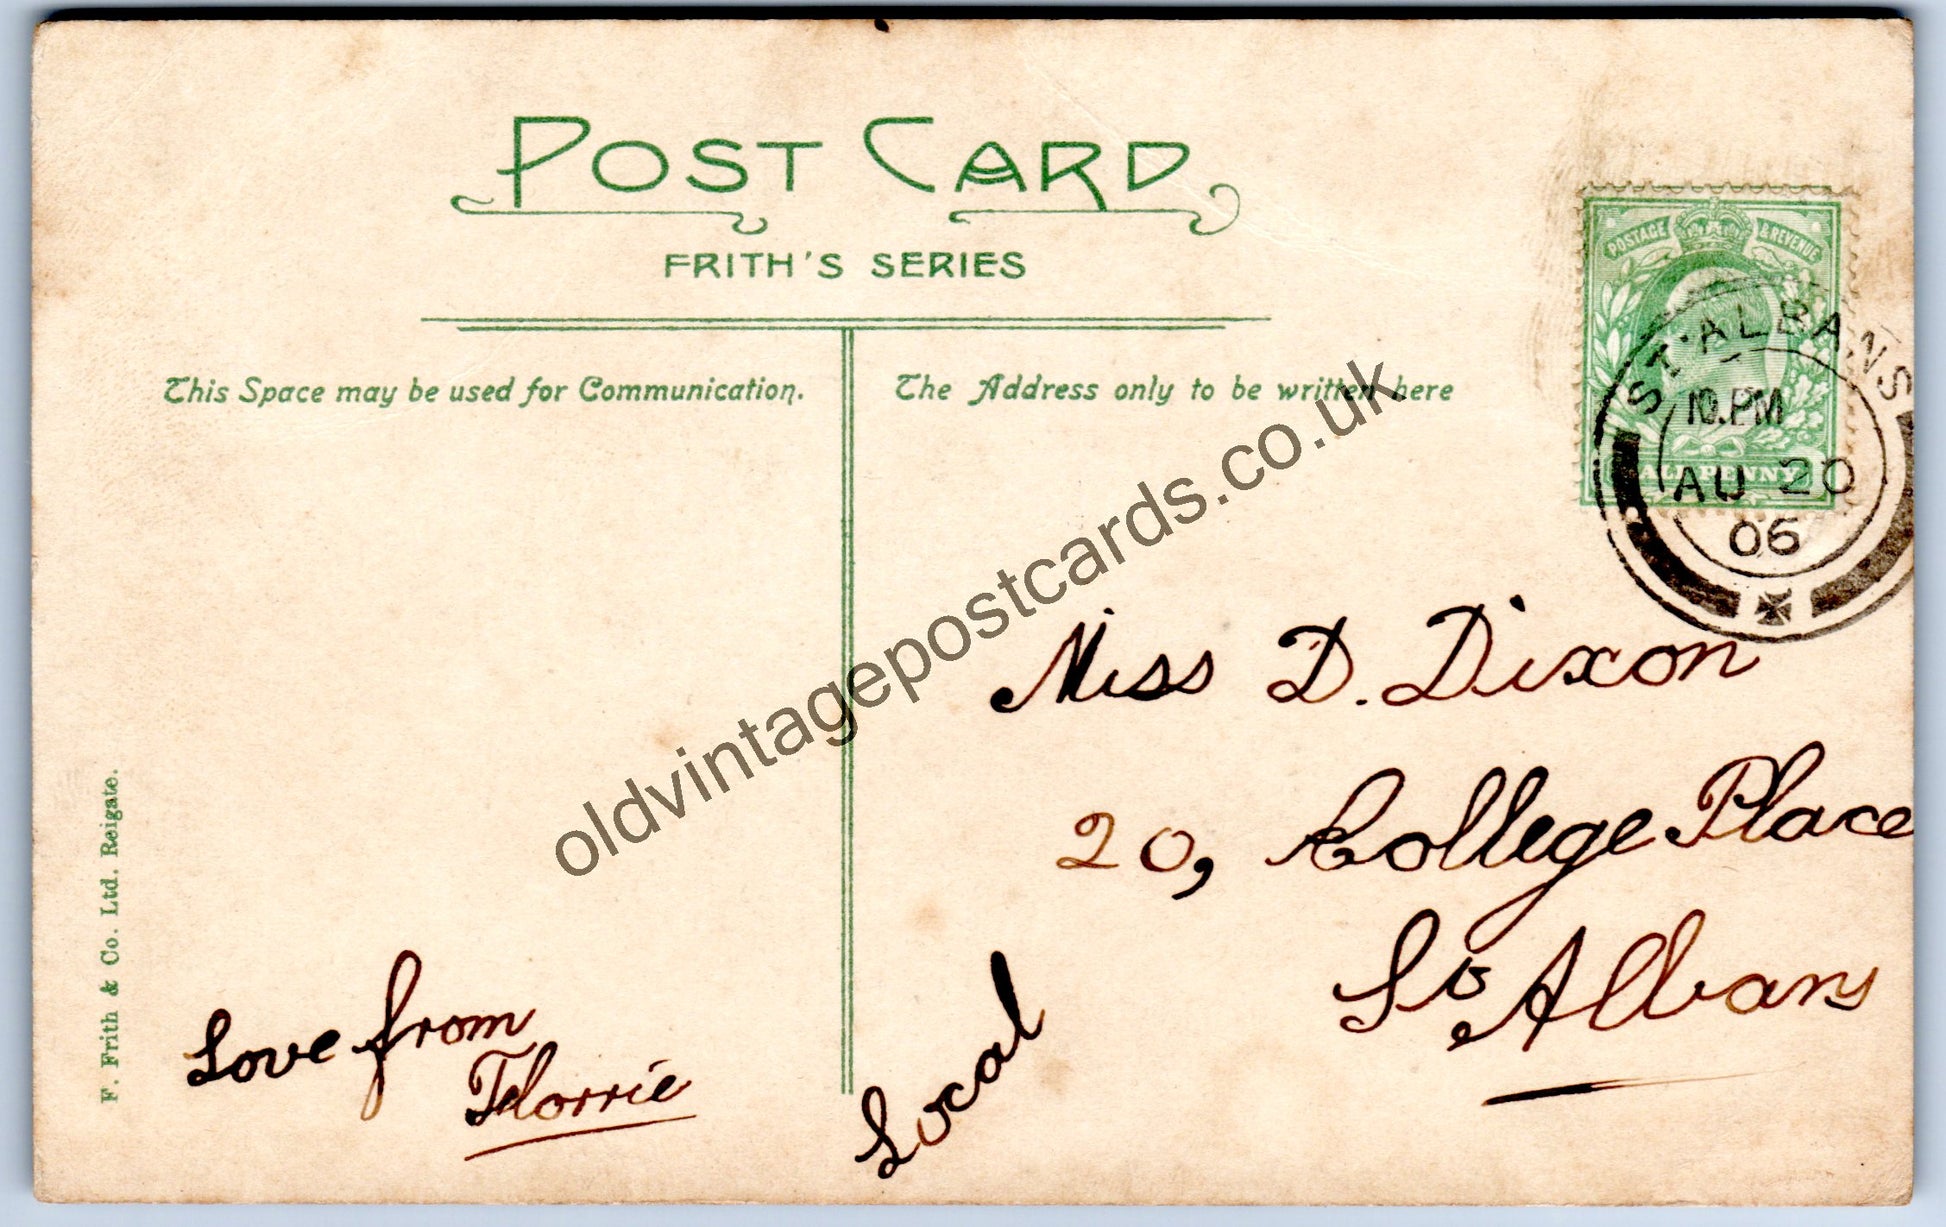 POST CARD
FRITH'S SERIES
This Space may be used for Communication.
The Address only to be written here
POSTAGE & REVENUE
ST ALBANS
10.PM
AU 20
06
ALF PENNY
Miss D. Dixon
20, College Place
St Albans
Local
Love from
Florrie
F. Frith & Co. Ltd. Reigate.
oldvintagepostcards.co.uk